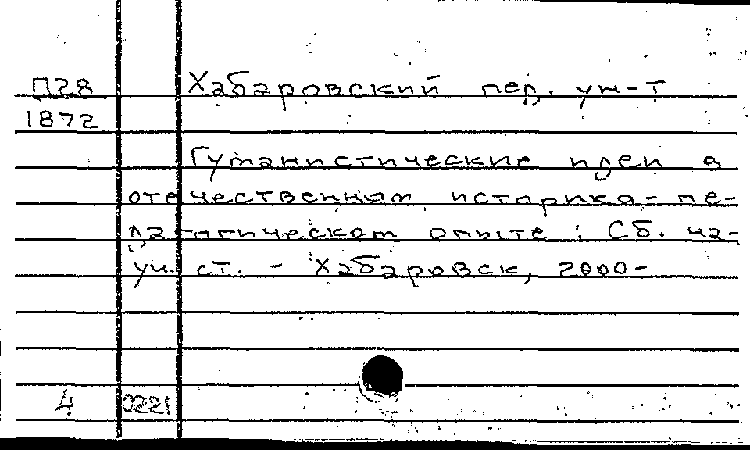 П28 Хабаровский пед. ун-т
1872
Гуманистические идеи в
отечественном историко-пе-
дагогическом опыте : Сб. на-
уч. ст. - Хабаровск, 2000-
4 0221